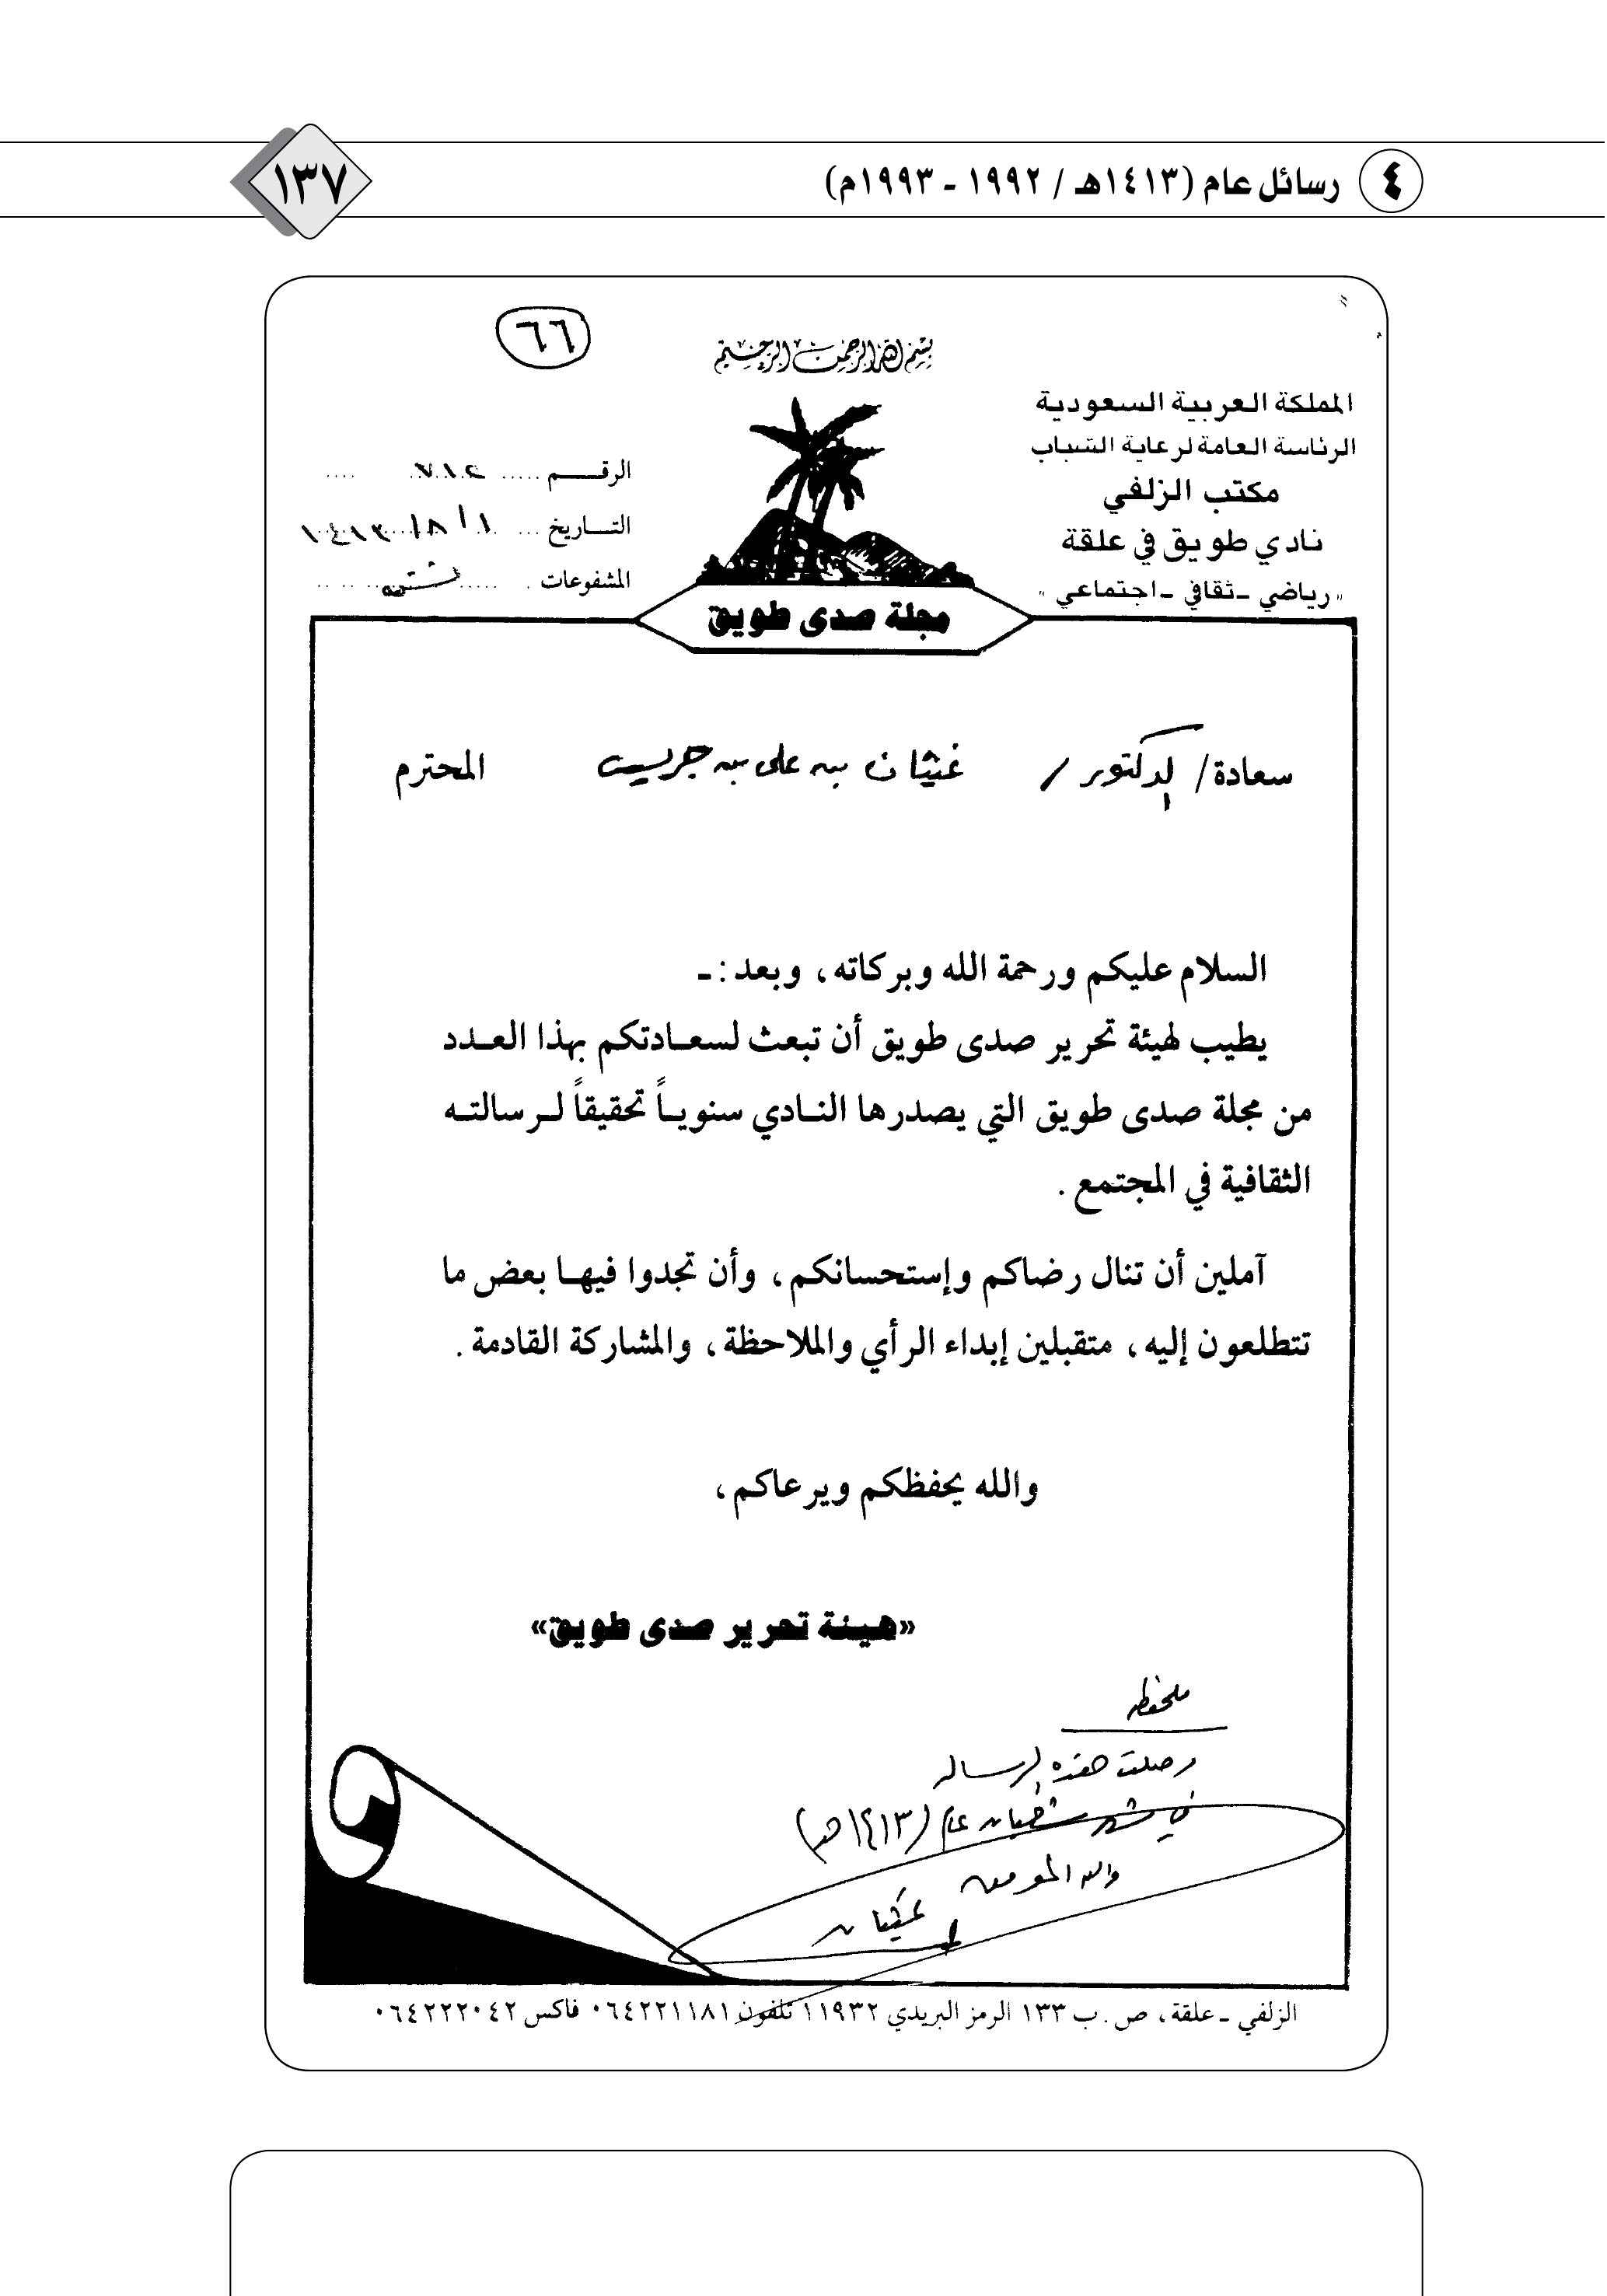 ٤ رسائل عام (١٤١٣هـ / ١٩٩٢ - ١٩٩٣م)
١٣٧
٦٦
بسم الله الرحمن الرحيم
المملكة العربية السعودية
الرئاسة العامة لرعاية الشباب
مكتب الزلفي
نادي طويق في علقة
« رياضي - ثقافي - اجتماعي »
الرقـــم
التـــاريخ ١ / ٨ / ١٤١٣
المشفوعات
مجلة صدى طويق
سعادة / الدكتور / غيثان بن علي بن جريس المحترم
السلام عليكم ورحمة الله وبركاته ، وبعد : ـ
يطيب لهيئة تحرير صدى طويق أن تبعث لسعـادتكم بهذا العـدد
من مجلة صدى طويق التي يصدرها النـادي سنويـاً تحقيقاً لـرسالتـه
الثقافية في المجتمع .
آملين أن تنال رضاكم وإستحسانكم ، وأن تجدوا فيهـا بعض ما
تتطلعون إليه ، متقبلين إبداء الرأي والملاحظة ، والمشاركة القادمة .
والله يحفظكم ويرعاكم ،
«هيئة تحرير صدى طويق»
ملحظه
وصلت هذه الرساله
في شهر شعبان عام (١٤١٣هـ)
والله الموفق
غيثان
الزلفي ـ علقة ، ص . ب ١٣٣ الرمز البريدي ١١٩٣٢ تلفون ٠٦٤٢٢١١٨١ فاكس ٠٦٤٢٢٢٠٤٢